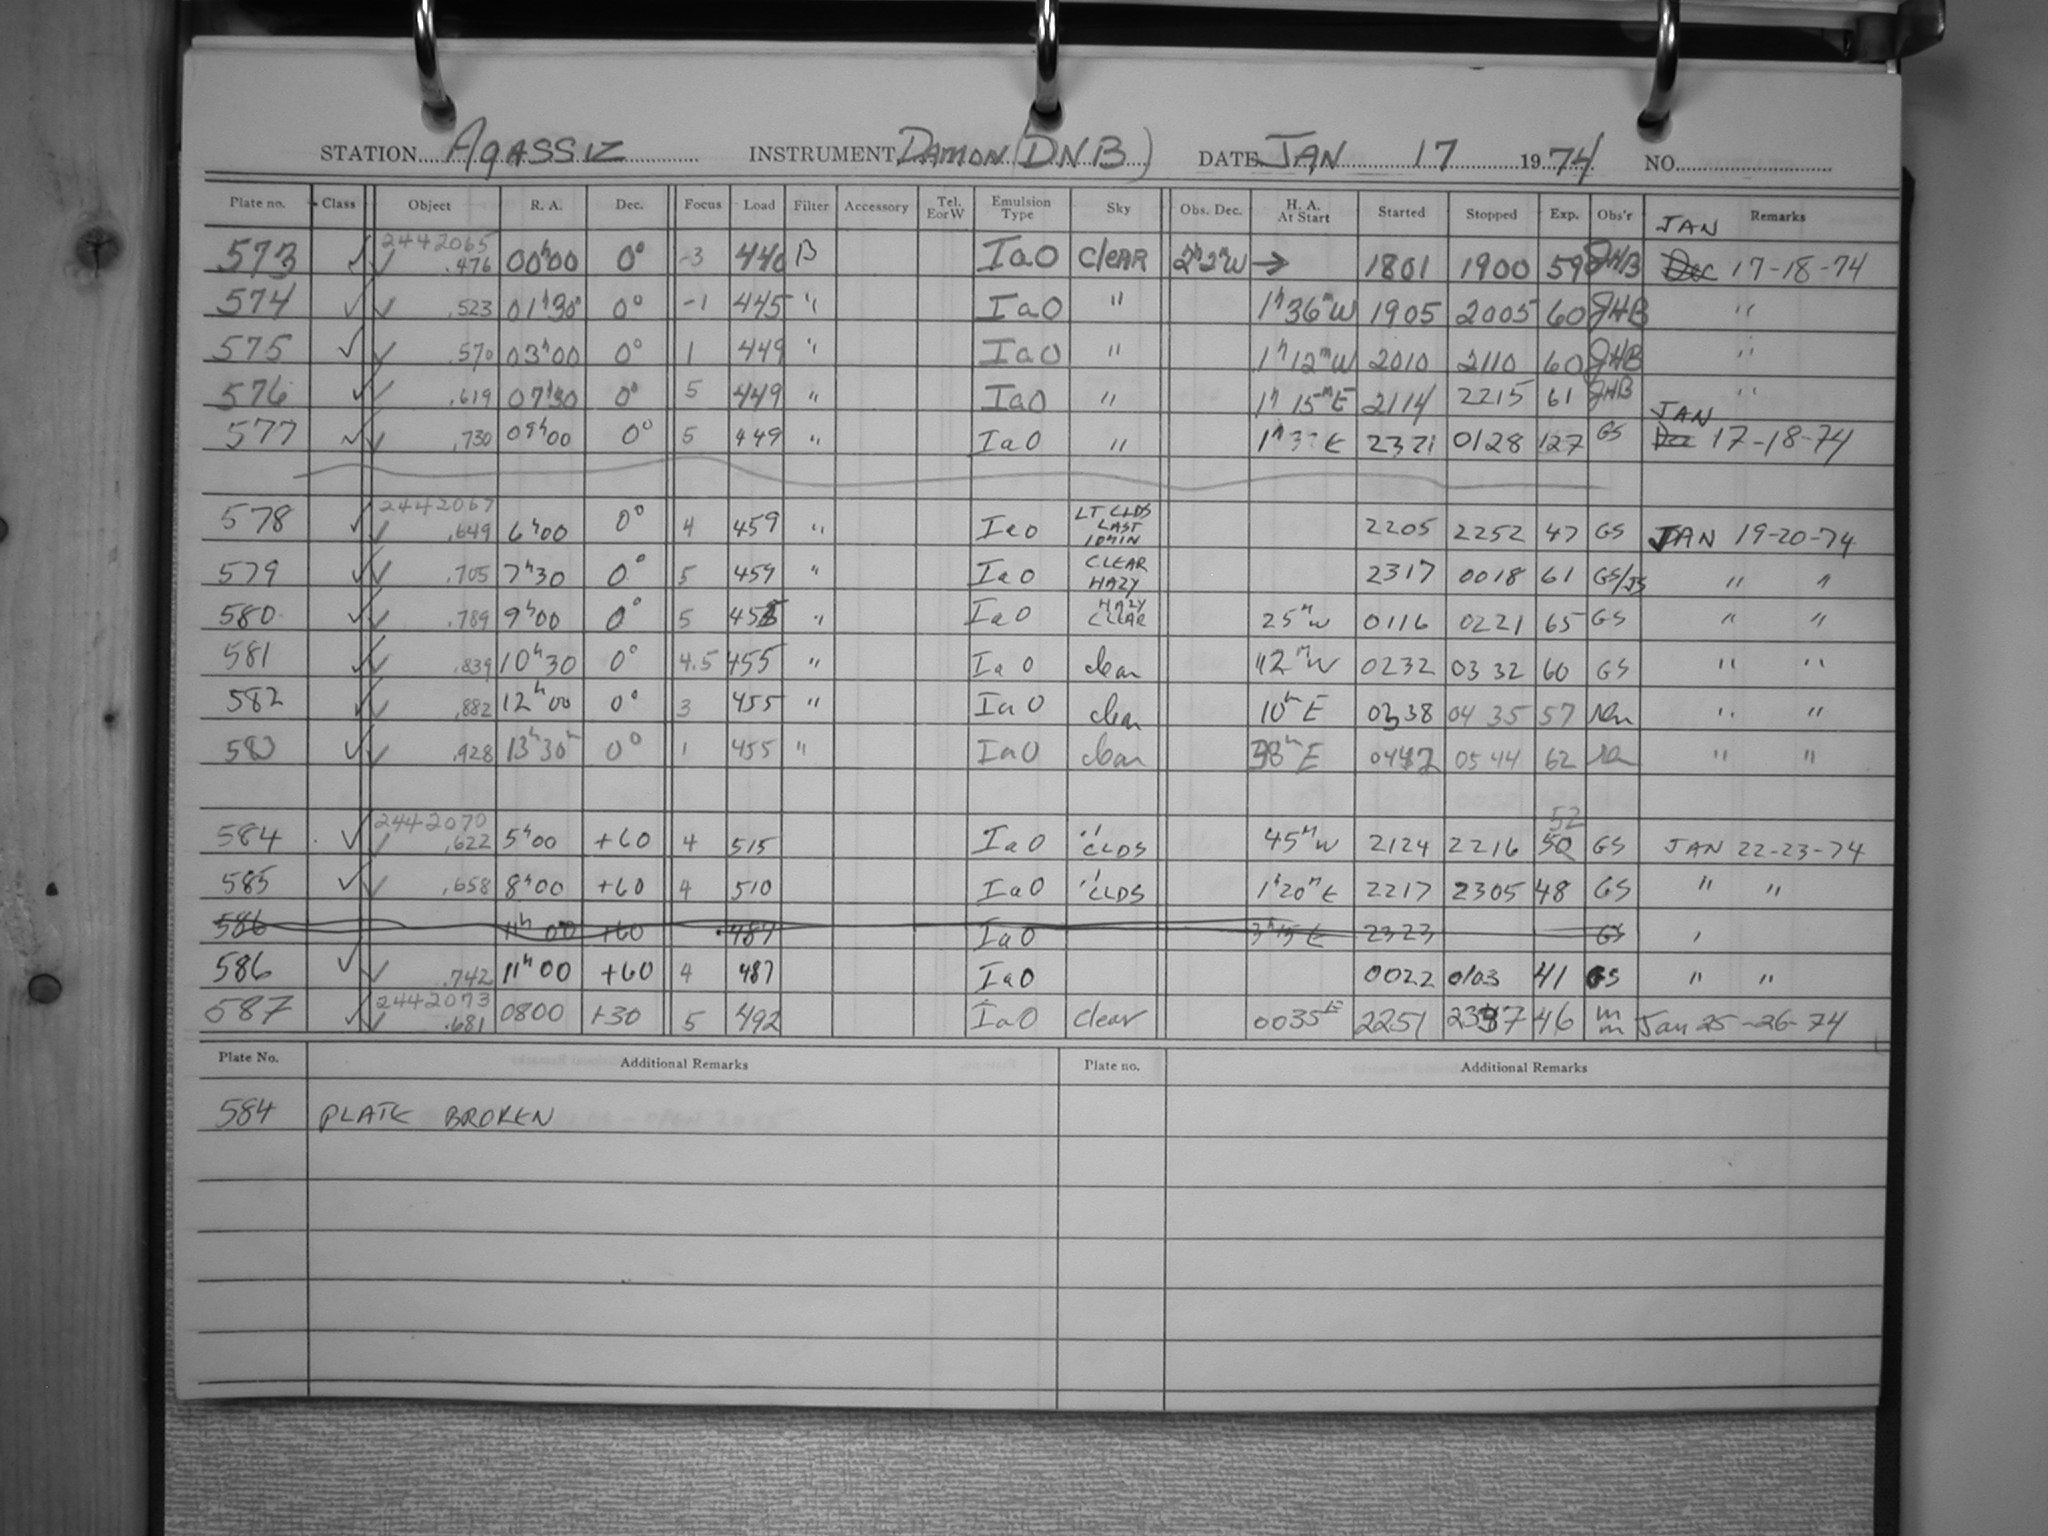 STATION AGASSIZ INSTRUMENT DAMON (DNB) DATE JAN 17 1974 NO.
Plate no. Class Object R. A. Dec. Focus Load Filter Accessory Tel. E or W Emulsion Type Sky Obs. Dec. H. A. At Start Started Stopped Exp. Obs'r Remarks
573 ✓ ✓ 2442065 .476 00h00 0° -3 440 B IaO CLEAR 2h2mW → 1801 1900 59 JHB JAN 17-18-74
574 ✓ ✓ .523 01h30 0° -1 445 " IaO " 1h36mW 1905 2005 60 JHB "
575 ✓ ✓ .570 03h00 0° 1 449 " IaO " 1h12mW 2010 2110 60 JHB "
576 ✓ ✓ .619 07h30 0° 5 449 " IaO " 1h15mE 2114 2215 61 JHB "
577 ✓ ✓ .730 09h00 0° 5 449 " IaO " 2321 0128 127 GS JAN 17-18-74
578 ✓ ✓ 2442067 .649 6h00 0° 4 459 " IaO LT CLDS LAST 10MIN 2205 2252 47 GS JAN 19-20-74
579 ✓ ✓ .705 7h30 0° 5 459 " IaO CLEAR HAZY 2317 0018 61 GS/JS " "
580 ✓ ✓ .789 9h00 0° 5 455 " IaO HAZY CLEAR 25mW 0116 0221 65 GS " "
581 ✓ ✓ .839 10h30 0° 4.5 455 " IaO clear 12mW 0232 0332 60 GS " "
582 ✓ ✓ .882 12h00 0° 3 455 " IaO clear 10mE 0338 0435 57 " "
583 ✓ ✓ .928 13h30m 0° 1 455 " IaO clear 38mE 0442 0544 62 " "
584 ✓ ✓ 2442070 .622 5h00 +60 4 515 IaO CLDS 45mW 2124 2216 52 GS JAN 22-23-74
585 ✓ ✓ .658 8h00 +60 4 510 IaO CLDS 1h20mE 2217 2305 48 GS " "
586 11h00 +60 487 IaO 3h15E 2323 GS "
586 ✓ ✓ .742 11h00 +60 4 487 IaO 0022 0103 41 GS " "
587 ✓ ✓ 2442073 .681 0800 +30 5 492 IaO clear 0035E 2251 2337 46 mm Jan 25-26-74
Plate No. Additional Remarks Plate no. Additional Remarks
584 PLATE BROKEN